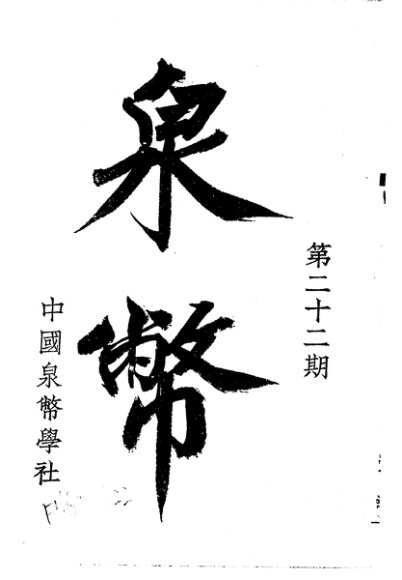 第二十二期
泉幣
中國泉幣學社